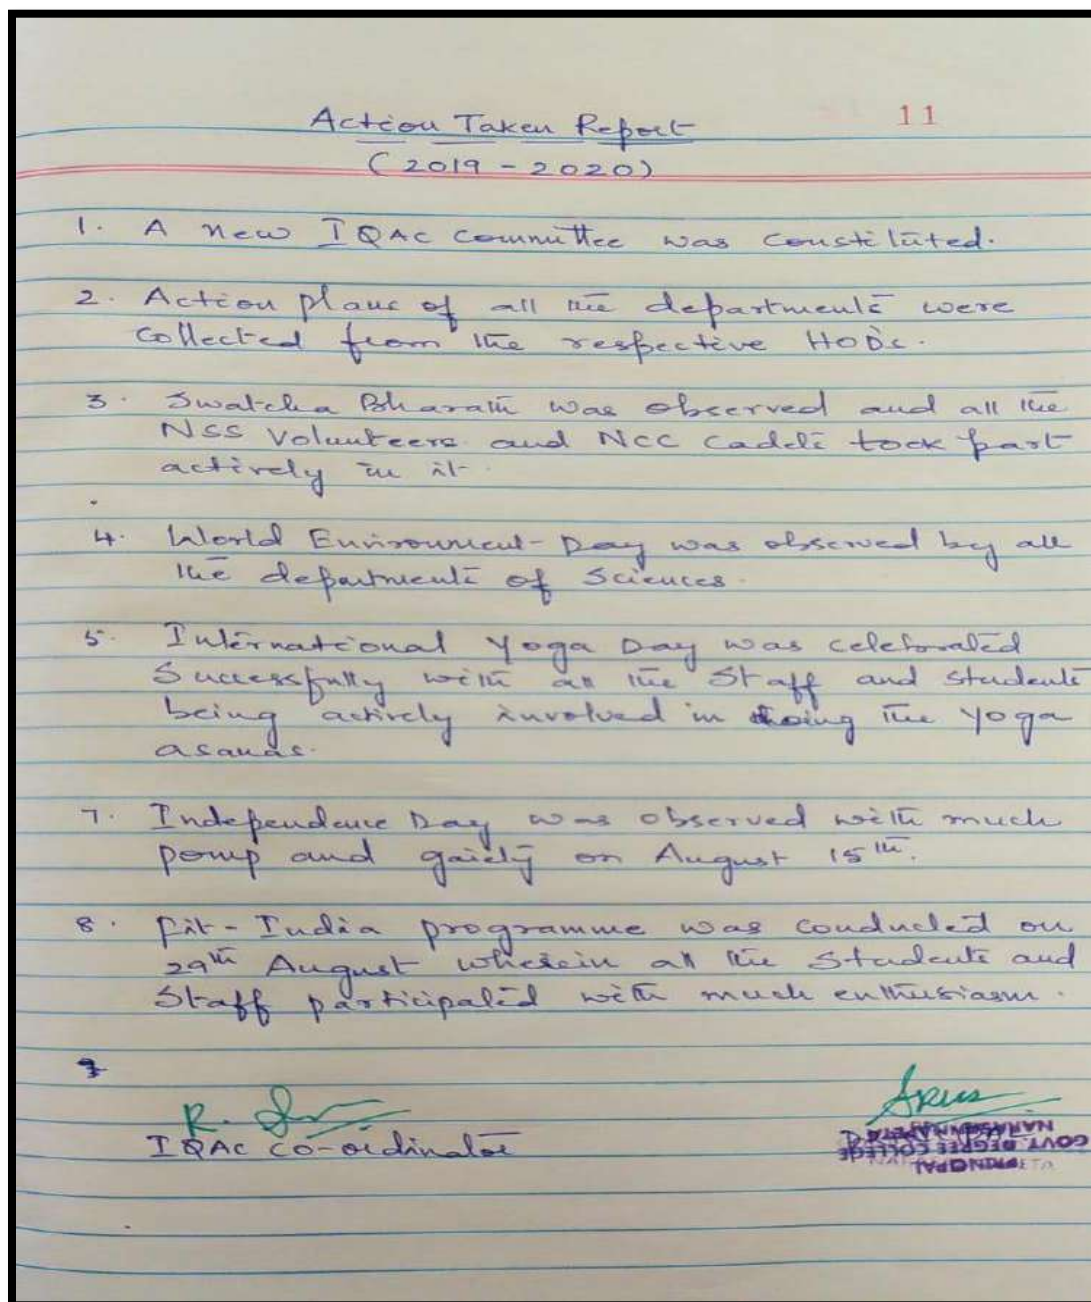 11
Action Taken Report
(2019-2020)
1. A new IQAC committee was constituted.
2. Action plans of all the departments were
collected from the respective HODs.
3. Swatcha Bharath was observed and all the
NSS Volunteers and NCC Cadets took part
actively in it.
4. World Environment Day was observed by all
the departments of Sciences.
5. International Yoga Day was celebrated
Successfully with all the Staff and students
being actively involved in doing the yoga
asanas.
7. Independence Day was observed with much
pomp and gaiety on August 15th.
8. Fit-India programme was conducted on
29th August wherein all the Students and
Staff participated with much enthusiasm.
R.
IQAC co-ordinator
PRINCIPAL
GOVT. DEGREE COLLEGE